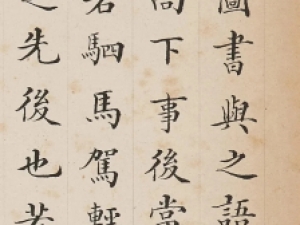 圖書與之語
高下事後當
若駟馬駕輕
之先後也若